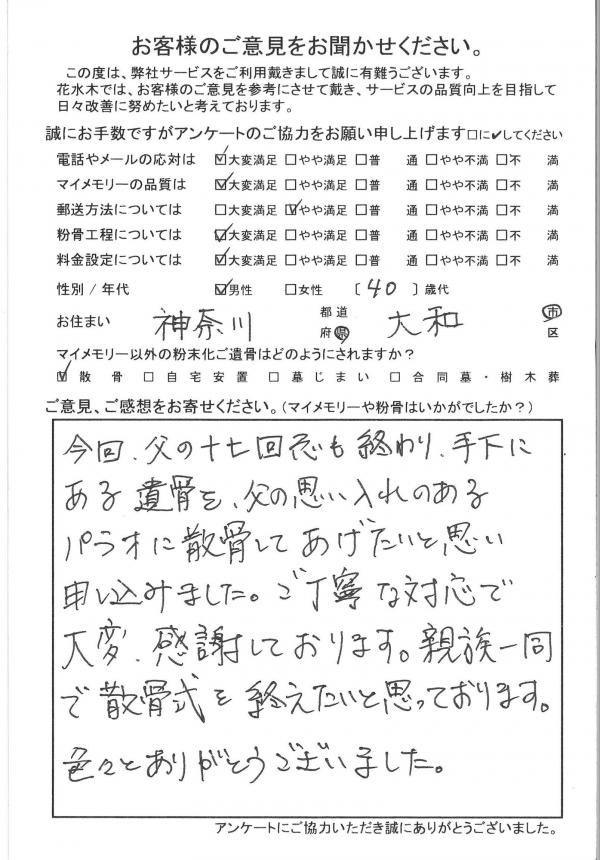 お客様のご意見をお聞かせください。
この度は、弊社サービスをご利用戴きまして誠に有難うございます。
花水木では、お客様のご意見を参考にさせて戴き、サービスの品質向上を目指して
日々改善に努めたいと考えております。
誠にお手数ですがアンケートのご協力をお願い申し上げます□に✔してください
電話やメールの応対は ☑大変満足 □やや満足 □普 通 □やや不満 □不 満
マイメモリーの品質は ☑大変満足 □やや満足 □普 通 □やや不満 □不 満
郵送方法については □大変満足 ☑やや満足 □普 通 □やや不満 □不 満
粉骨工程については ☑大変満足 □やや満足 □普 通 □やや不満 □不 満
料金設定については ☑大変満足 □やや満足 □普 通 □やや不満 □不 満
性別 / 年代 ☑男性 □女性 〔 40 〕歳代
お住まい 神奈川 都 道 府 県 大和 市 区
マイメモリー以外の粉末化ご遺骨はどのようにされますか?
☑ 散 骨 □ 自 宅 安 置 □ 墓 じ ま い □ 合 同 墓 ・ 樹 木 葬
ご意見、ご感想をお寄せください。(マイメモリーや粉骨はいかがでしたか?)
今回、父の十七回忌も終わり、手下に
ある遺骨を、父の思い入れのある
パラオに散骨してあげたいと思い
申し込みました。ご丁寧な対応で
大変、感謝しております。親族一同
で散骨式を終えたいと思っております。
色々とありがとうございました。
アンケートにご協力いただき誠にありがとうございました。